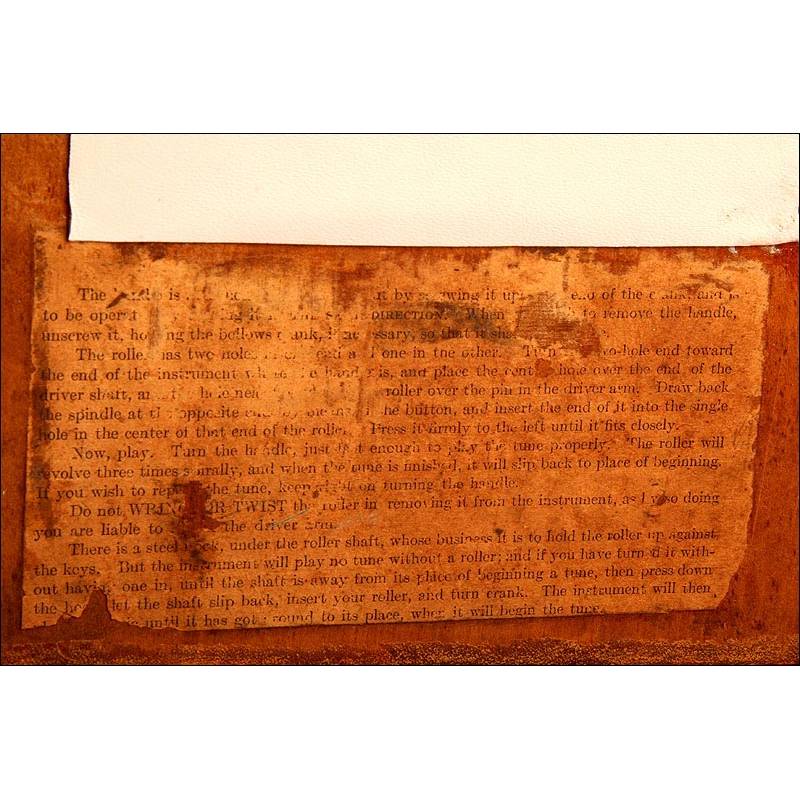 The is by screwing it up end of the crank, and is
to be operat it DIRECTION. When to remove the handle,
unscrew it, holding the bellows crank, if necessary, so that it
The roller has two holes one in the other. Turn two-hole end toward
the end of the instrument where the handle is, and place the center hole over the end of the
driver shaft, and hole near roller over the pin in the driver arm. Draw back
the spindle at the opposite the button, and insert the end of it into the single
hole in the center of that end of the roller. Press it firmly to the left until it fits closely.
Now, play. Turn the handle, just fast enough to play the tune properly. The roller will
revolve three times spirally, and when the tune is finished, it will slip back to place of beginning.
If you wish to repeat the tune, keep right on turning the handle.
Do not WRING OR TWIST the roller in removing it from the instrument, as by so doing
you are liable to the driver arm.
There is a steel under the roller shaft, whose business it is to hold the roller up against
the keys. But the instrument will play no tune without a roller; and if you have turned it with-
out having one in, until the shaft is away from its place of beginning a tune, then press down
the let the shaft slip back, insert your roller, and turn crank. The instrument will then
until it has got round to its place, when it will begin the tune.